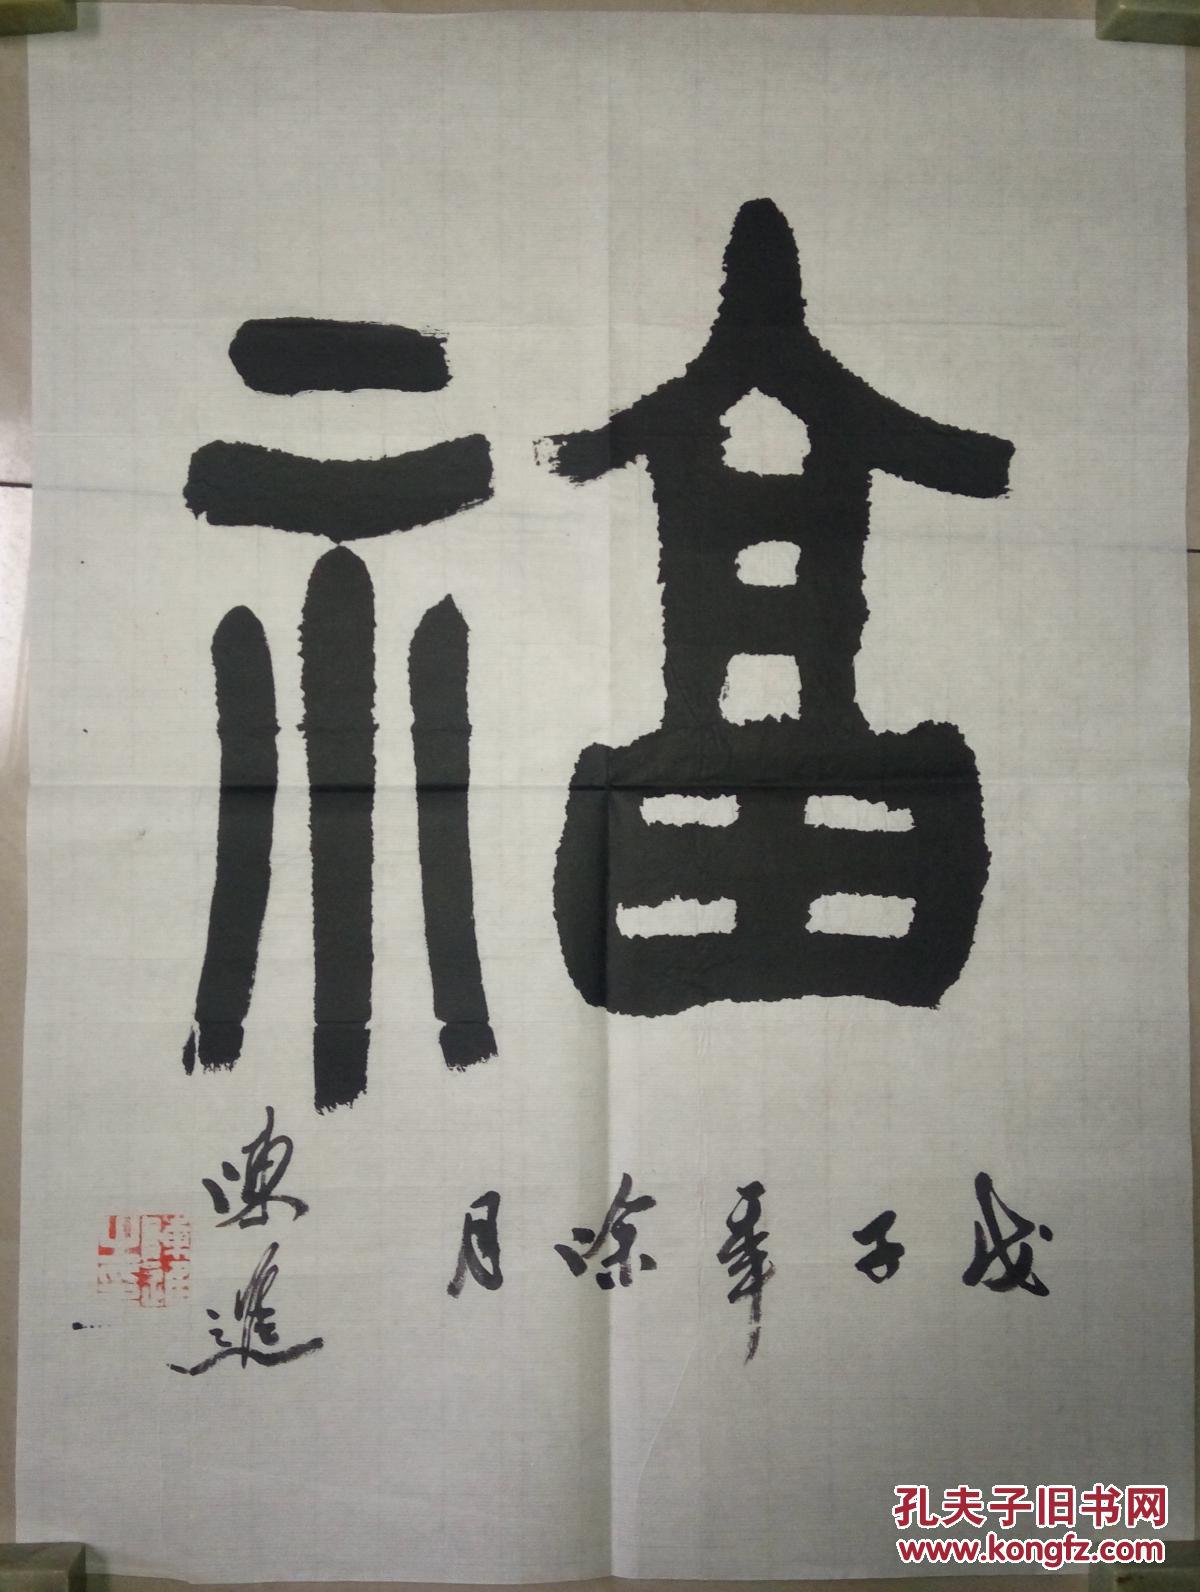 福
戊子年涂月
陳進
孔夫子旧书网
www.kongfz.com